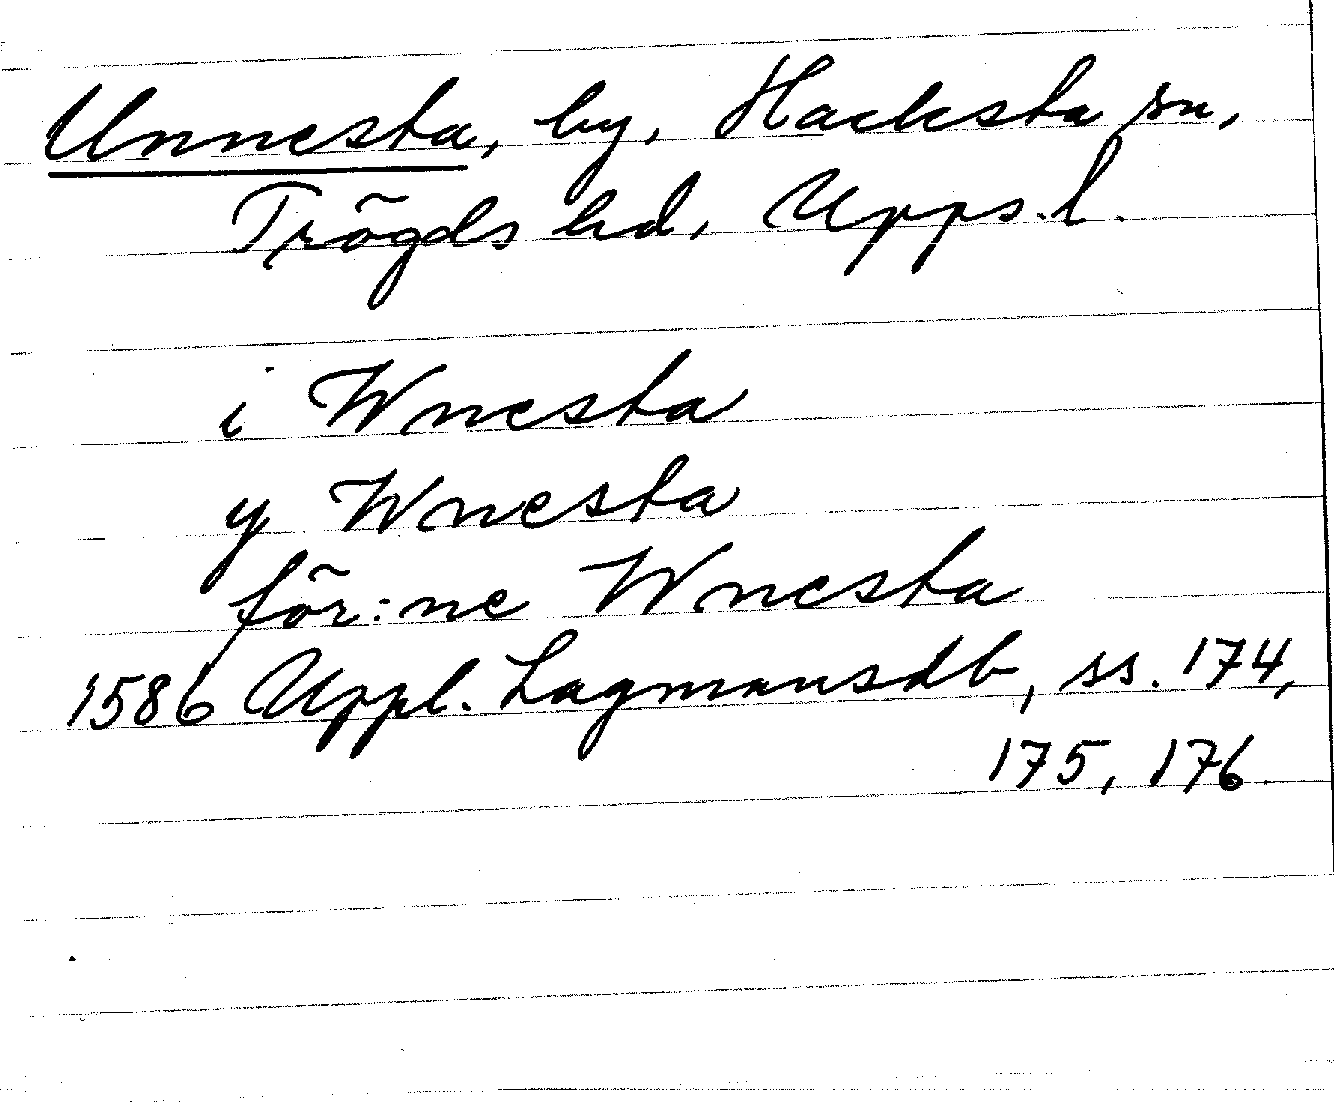 Unnesta, by, Hacksta sn,
Trögds hd, Upps. l.
i Wnesta
y Wnesta
för:ne Wnesta
1586 Uppl. Lagmansdb, ss. 174,
175, 176.